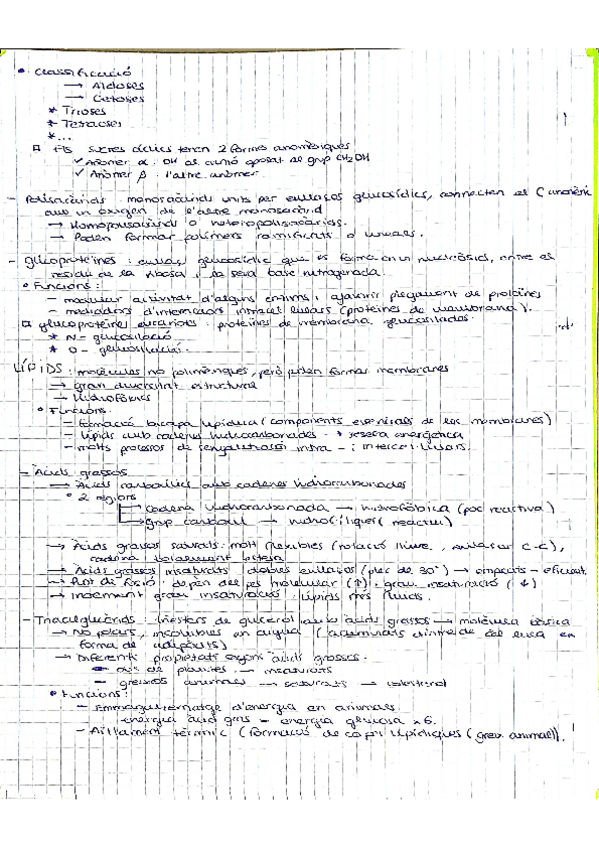 • Classificació
→ Aldoses
→ Cetoses
* Trioses
* Tetroses
* ...
Els sucres cíclics tenen 2 formes anomèriques
✓ Anòmer α: OH al carboni oposat al grup CH2OH
✓ Anòmer β: l'altre anòmer
- Polisacàrids: monosacàrids units per enllaços glucosídics, connecten el C anomèric
amb un oxigen de l'altre monosacàrid
→ Homopolisacàrids o heteropolisacàrids.
→ Poden formar polímers ramificats o lineals.
- Glicoproteïnes: enllaç glucosídic que es forma en un nucleòsid, entre el
residu de la ribosa i la seva base nitrogenada.
• Funcions:
- modular activitat d'alguns enzims i afavorir plegament de proteïnes
- mediadors d'interaccions intracel·lulars (proteïnes de membrana).
glucoproteïnes eucariotes: proteïnes de membrana glucosilades.
* N-glucosilació
* O-glucosilació.
LÍPIDS: molècules no polimèriques, però poden formar membranes
→ gran diversitat estructural
→ Hidrofòbics
• Funcions:
- Formació bicapa lipídica (components essencials de les membranes)
- Lípids amb cadenes hidrocarbonades → reserva energètica
- molts processos de senyalització intra- i intercel·lulars.
- Àcids grassos
→ Àcids carboxílics amb cadenes hidrocarbonades
• 2 regions
→ cadena hidrocarbonada → hidrofòbica (poc reactiva)
→ grup carboxil → hidrofíliques (reactiu)
→ Àcids grassos saturats: molt flexibles (rotació lliure, enllaços C-C),
cadena totalment estesa
→ Àcids grassos insaturats dobles enllaços (plec de 30°) → empaquets - eficient.
→ Punt de fusió: depèn del pes molecular (↑) i grau insaturació (↓)
→ Increment grau insaturació: lípids més fluids.
- Triacilglicèrids: triesters de glicerol amb àcids grassos → molècula bàsica
→ No polars, insolubles en aigua (acumulats dintre de cèl·lula en
forma de adipòsits)
→ Diferents propietats segons àcids grassos.
- olis de plantes → insaturats
- greixos animals → saturats → colesterol
• Funcions:
- Emmagatzematge d'energia en animals.
energia àcid gras - energia glucosa x6.
- Aïllament tèrmic (formació de capes lipídiques (greix animal)).